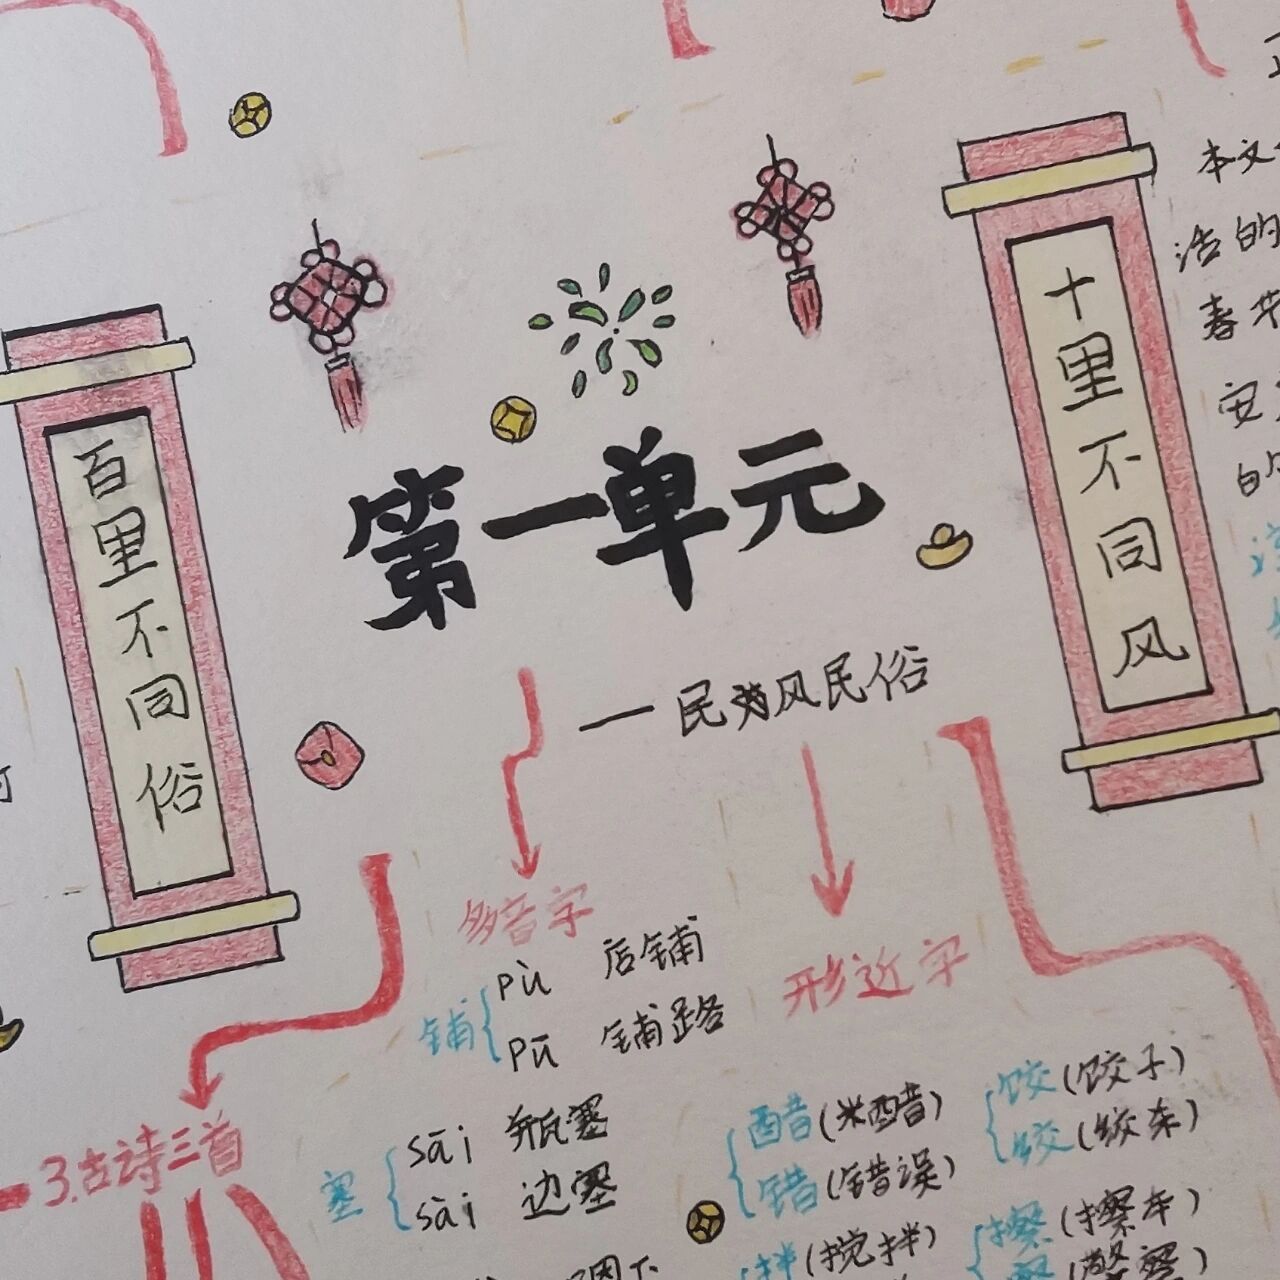 第一单元
一民风民俗
百里不同俗
十里不同风
本文
洁的
春节
安
白
多音字
铺
pù 店铺
pū 铺路
塞
sāi 瓶塞
sài 边塞
形近字
醋(米醋)
错(错误)
饺(饺子)
绞(绞车)
拌(搅拌)
擦(擦车)
察(警察)
3.古诗三首